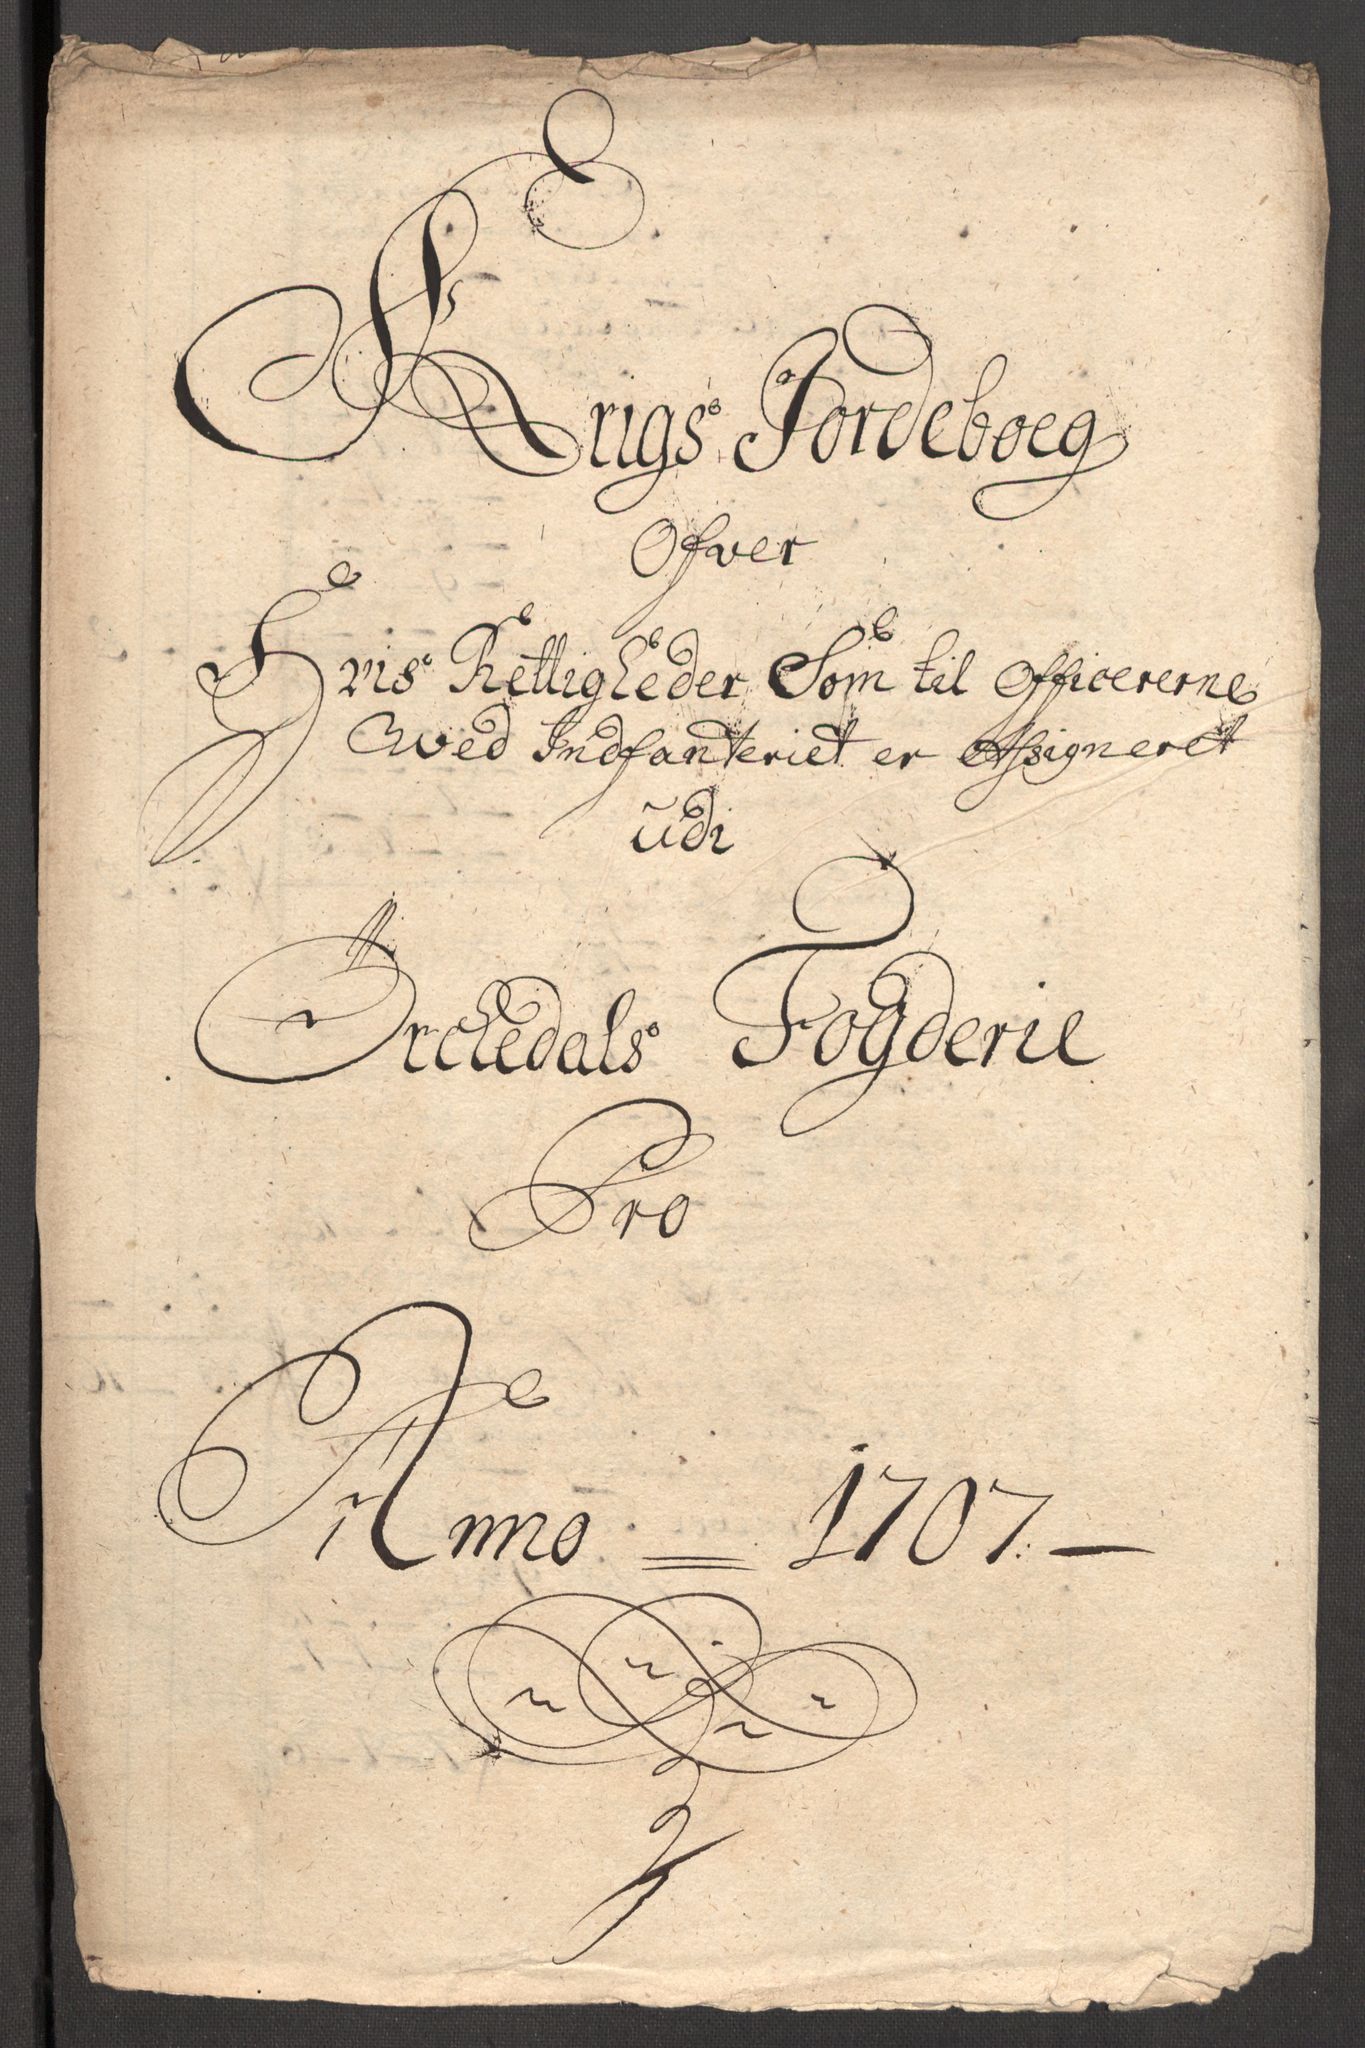 Krigs Jordeboeg
Ofver
Hvis Rettigheder Som til Officererne
Wed Indfanteriet er Assigneret
udi
Orchedals Fogderie
Pro
Anno = 1707. —